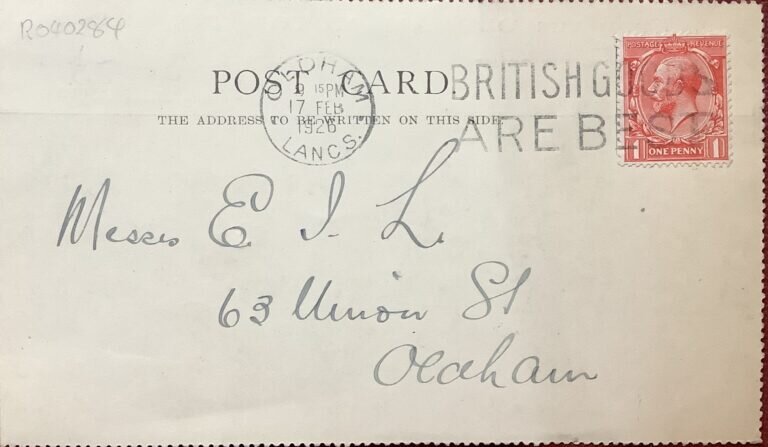 RO40284
POST CARD.
THE ADDRESS TO BE WRITTEN ON THIS SIDE.
OLDHAM
9 15PM
17 FEB
1926
LANCS.
BRITISH GOODS
ARE BEST
POSTAGE REVENUE
1 ONE PENNY 1
Messrs E. I. L.
63 Union St
Oldham